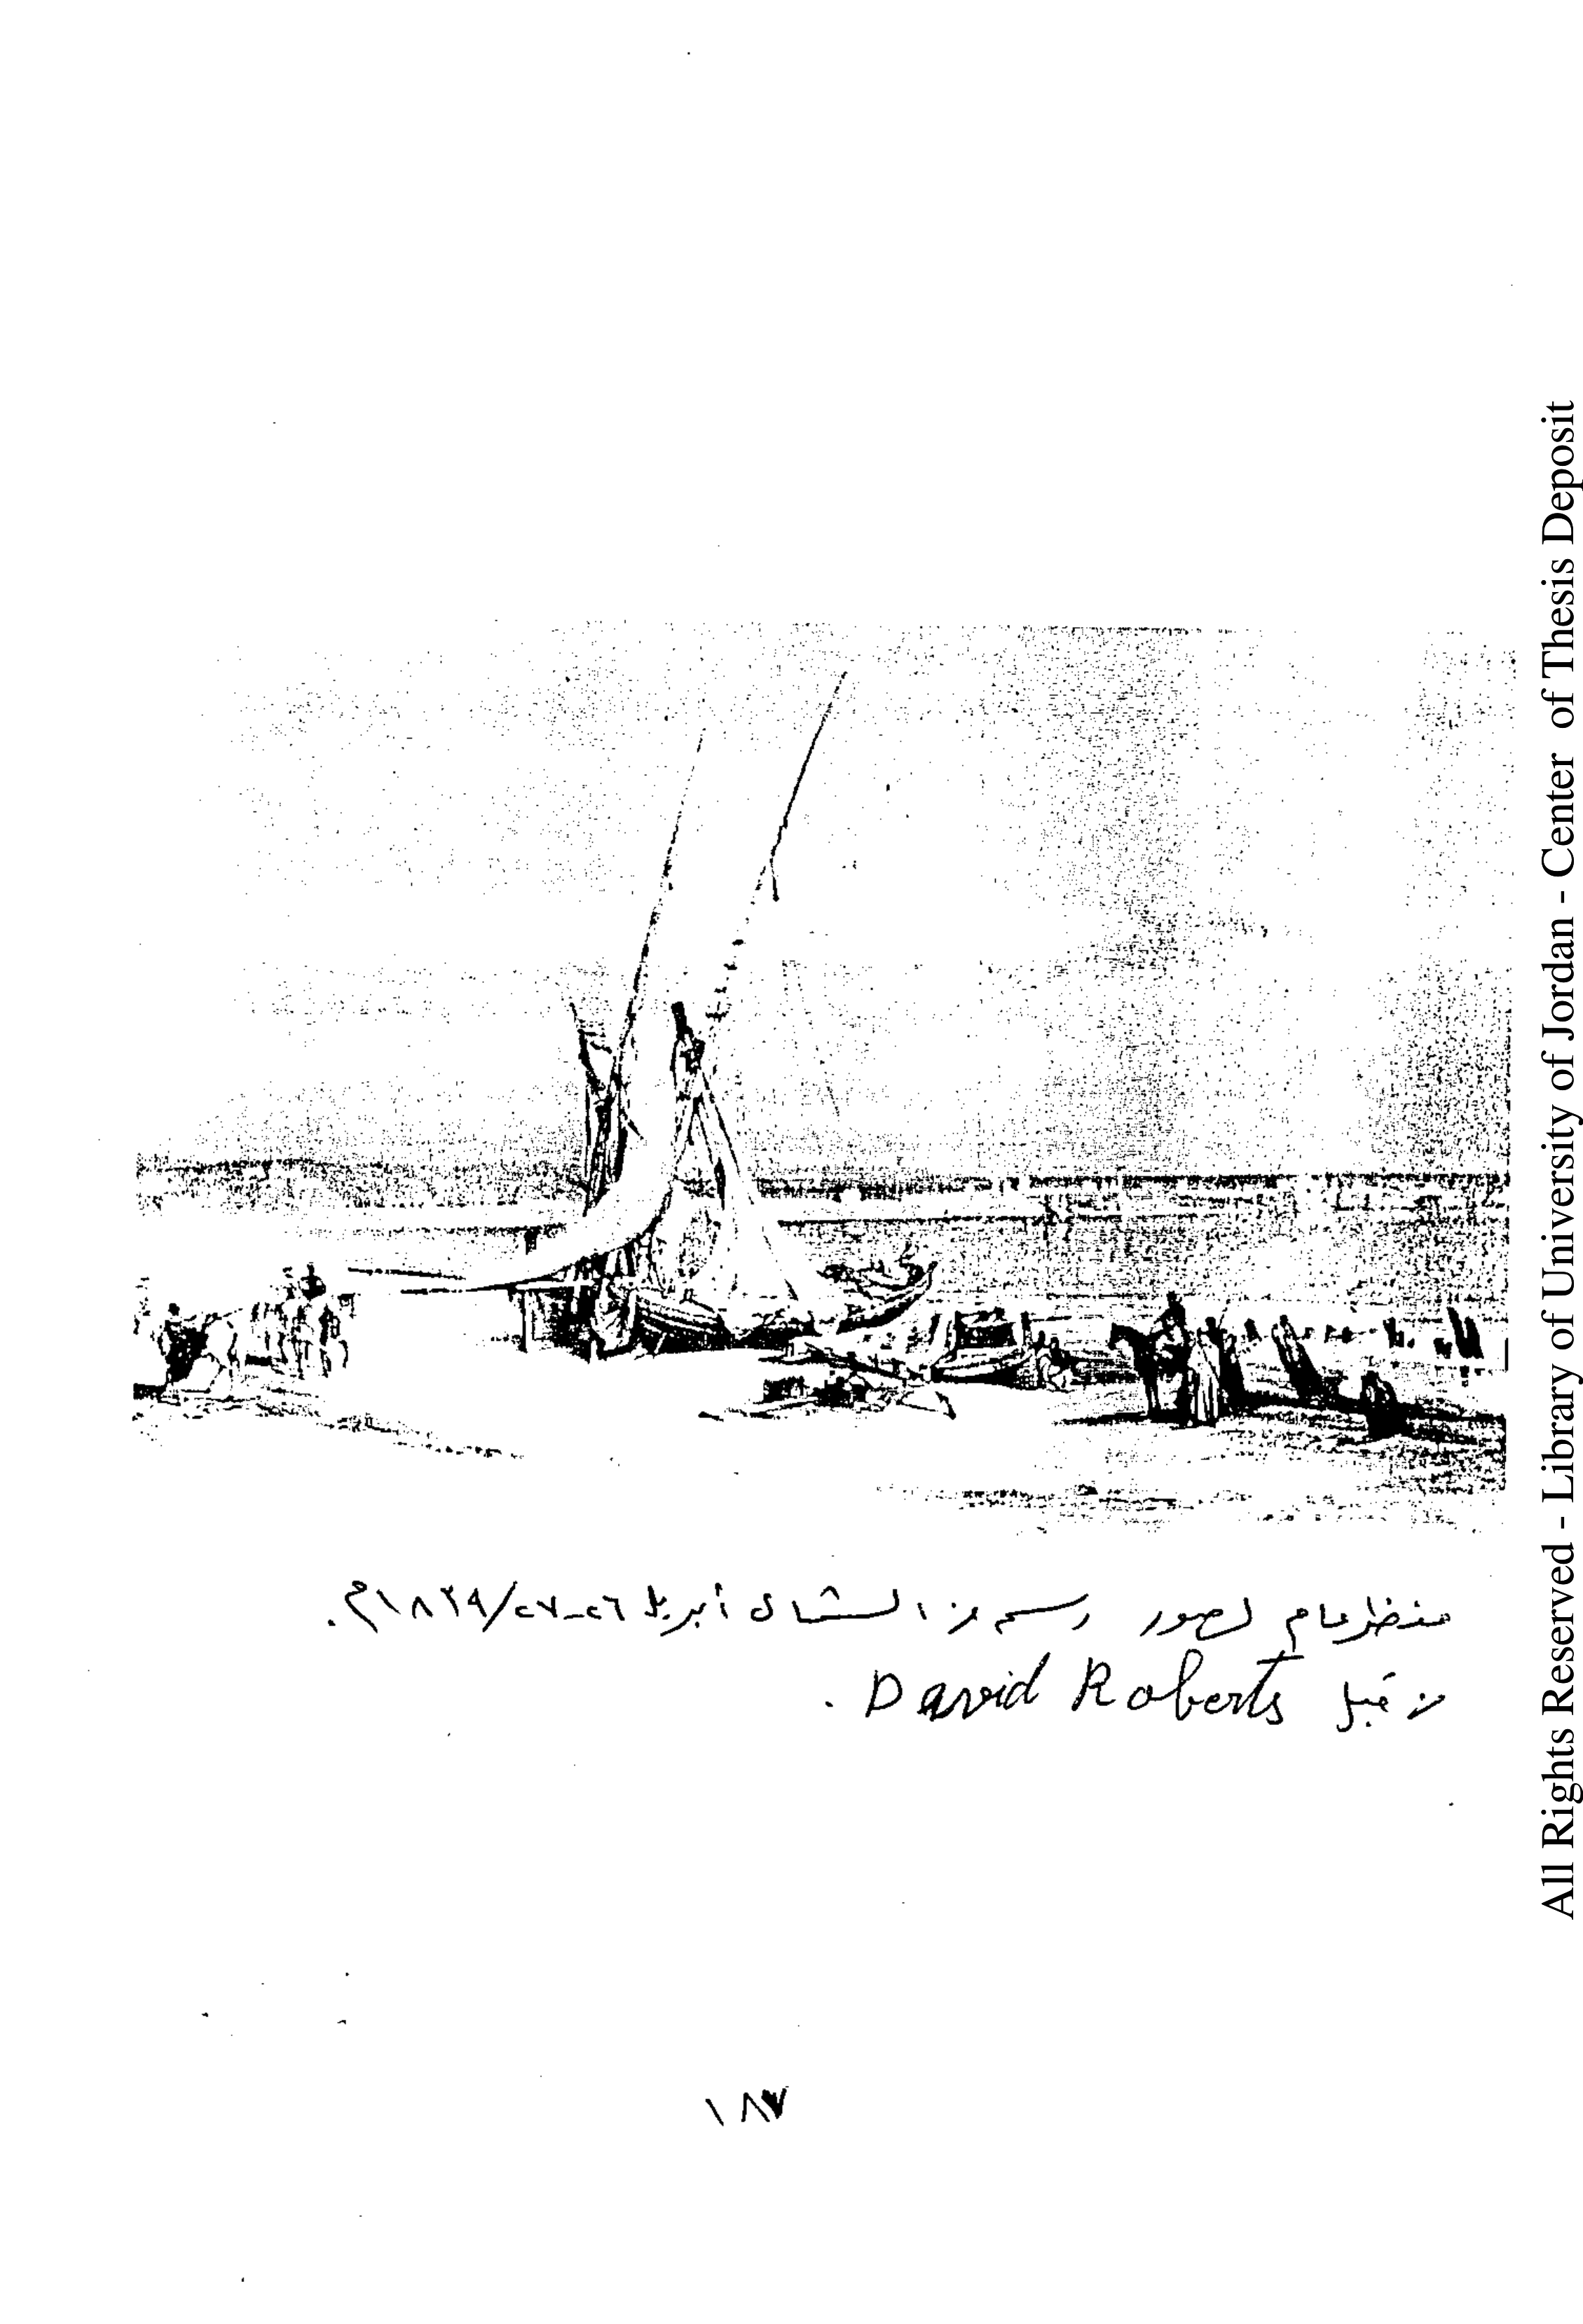 منظر عام لصور رسم من الشمال أبريل ٢٦-٢٧/١٨٣٩م.
من قبل David Roberts .
١٨٧
All Rights Reserved - Library of University of Jordan - Center of Thesis Deposit